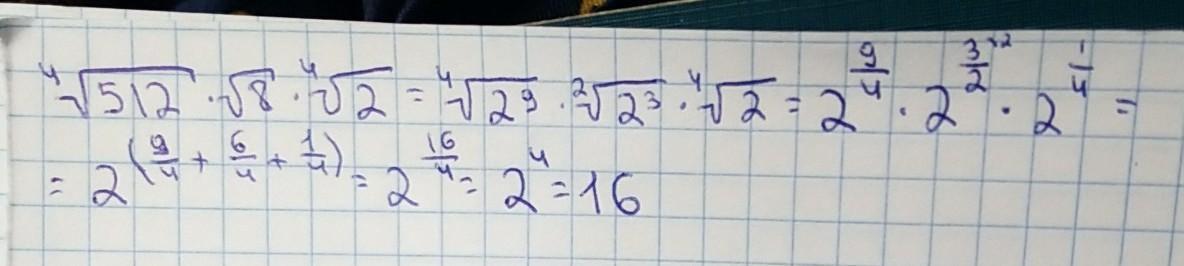 ⁴√512 · √8 · ⁴√2 = ⁴√2⁹ · ²√2³ · ⁴√2 = 2^(9/4) · 2^(3/2 ^(·2)) · 2^(1/4) =
= 2^(9/4 + 6/4 + 1/4) = 2^(16/4) = 2⁴ = 16